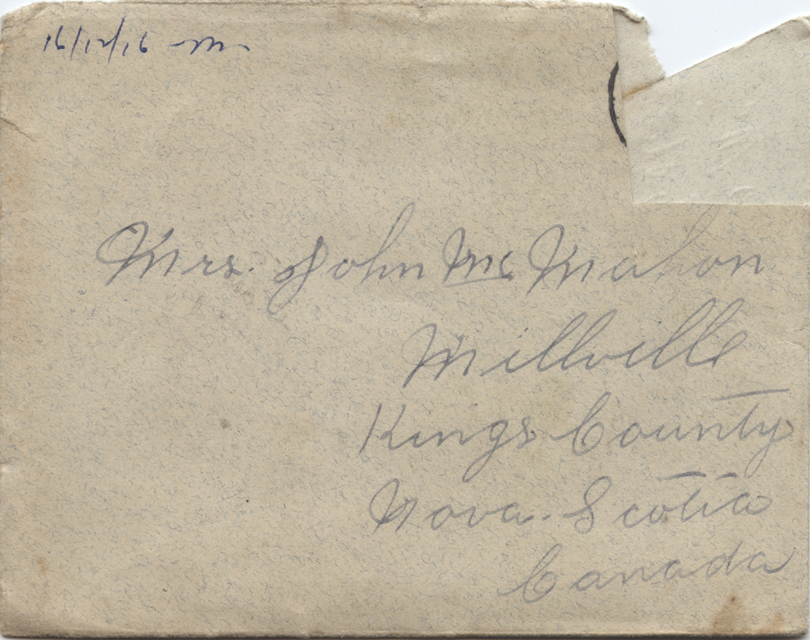 16/12/16 -m-
Mrs. John Mc Mahon
Millville
Kings County
Nova. Scotia
Canada